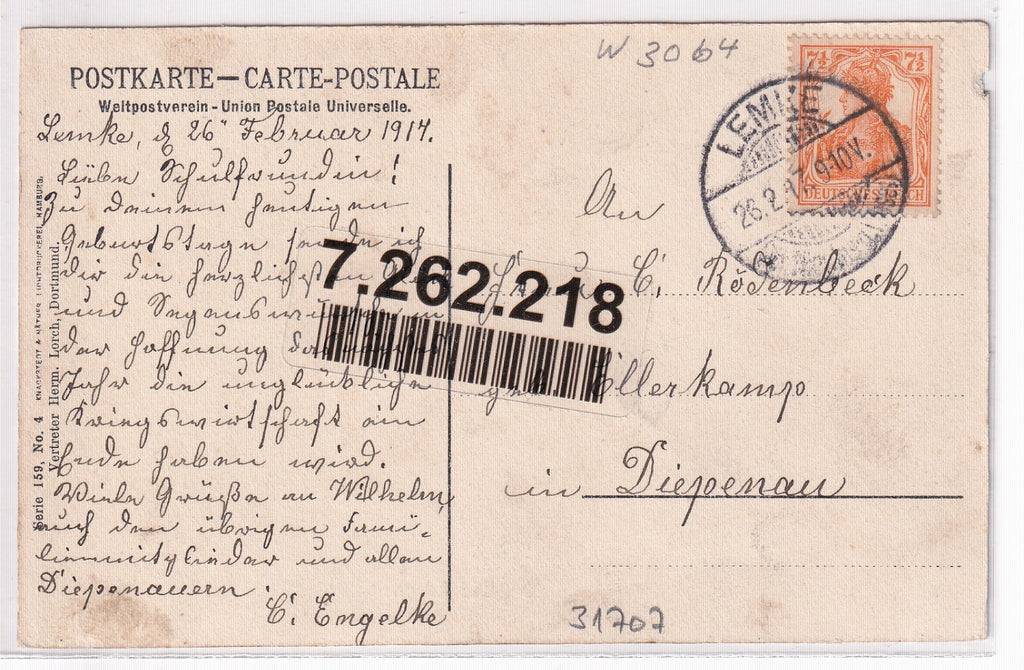 W 3064
POSTKARTE — CARTE-POSTALE
Weltpostverein - Union Postale Universelle.
Lemke, d 26" Februar 1917.
Liebe Schulfreundin!
Zu deinem heutigen
Geburtstage sende ich
dir die herzlichsten
und Segenswünsche in
der Hoffnung daß
Jahr die unglückliche
Kriegswirtschaft ein
Ende haben wird.
Viele Grüße an Wilhelm,
auch den übrigen Fami-
lienmitglieder und allen
Diepenauern.
C. Engelke
Serie 159, No. 4 KNACKSTEDT & NÄTHER LICHTDRUCKEREI, HAMBURG.
Vertreter Herm. Lorch, Dortmund.
7.262.218
7½ 7½
DEUTSCHES REICH
LEMKE
26.2.17. 9-10V.
An
Frau C. Rödenbeck
geb. Ellerkamp
in Diepenau
31707